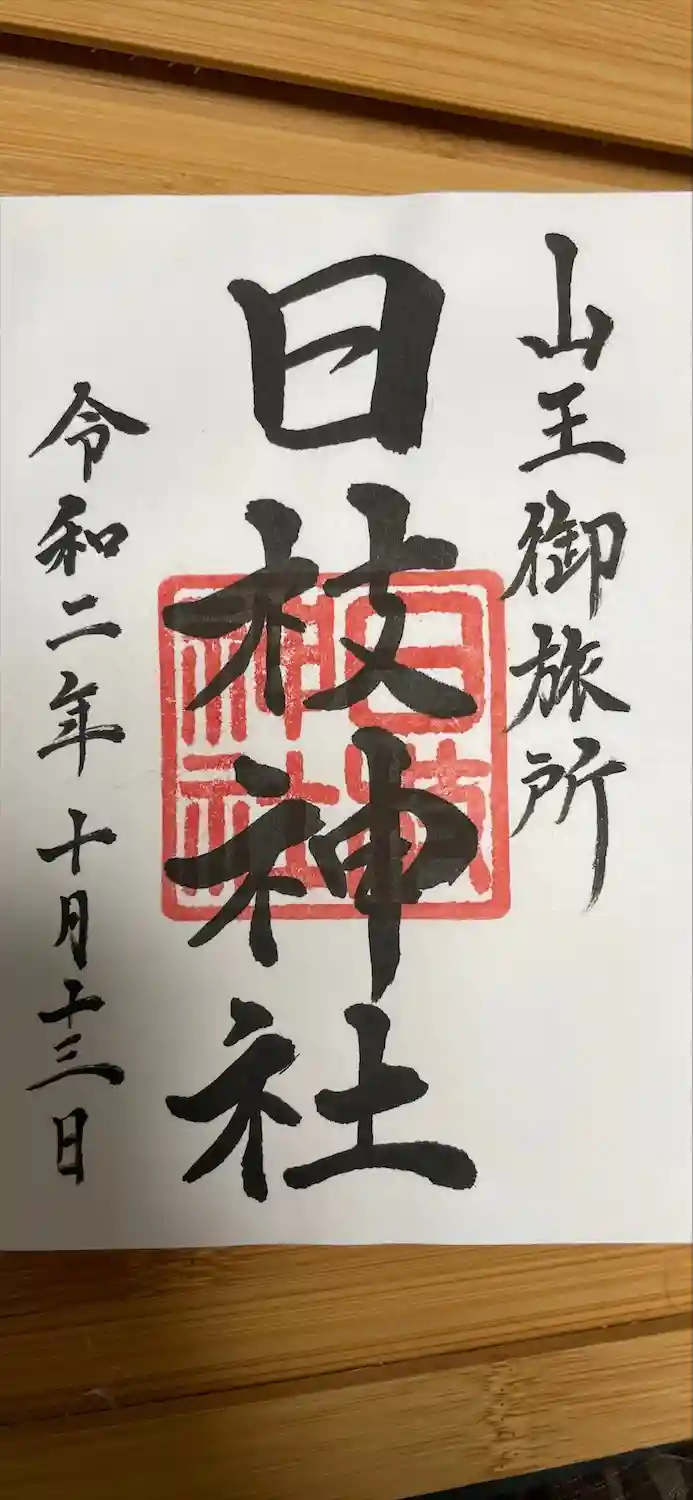 山王御旅所
日枝神社
日枝
神社
令和二年十月十三日